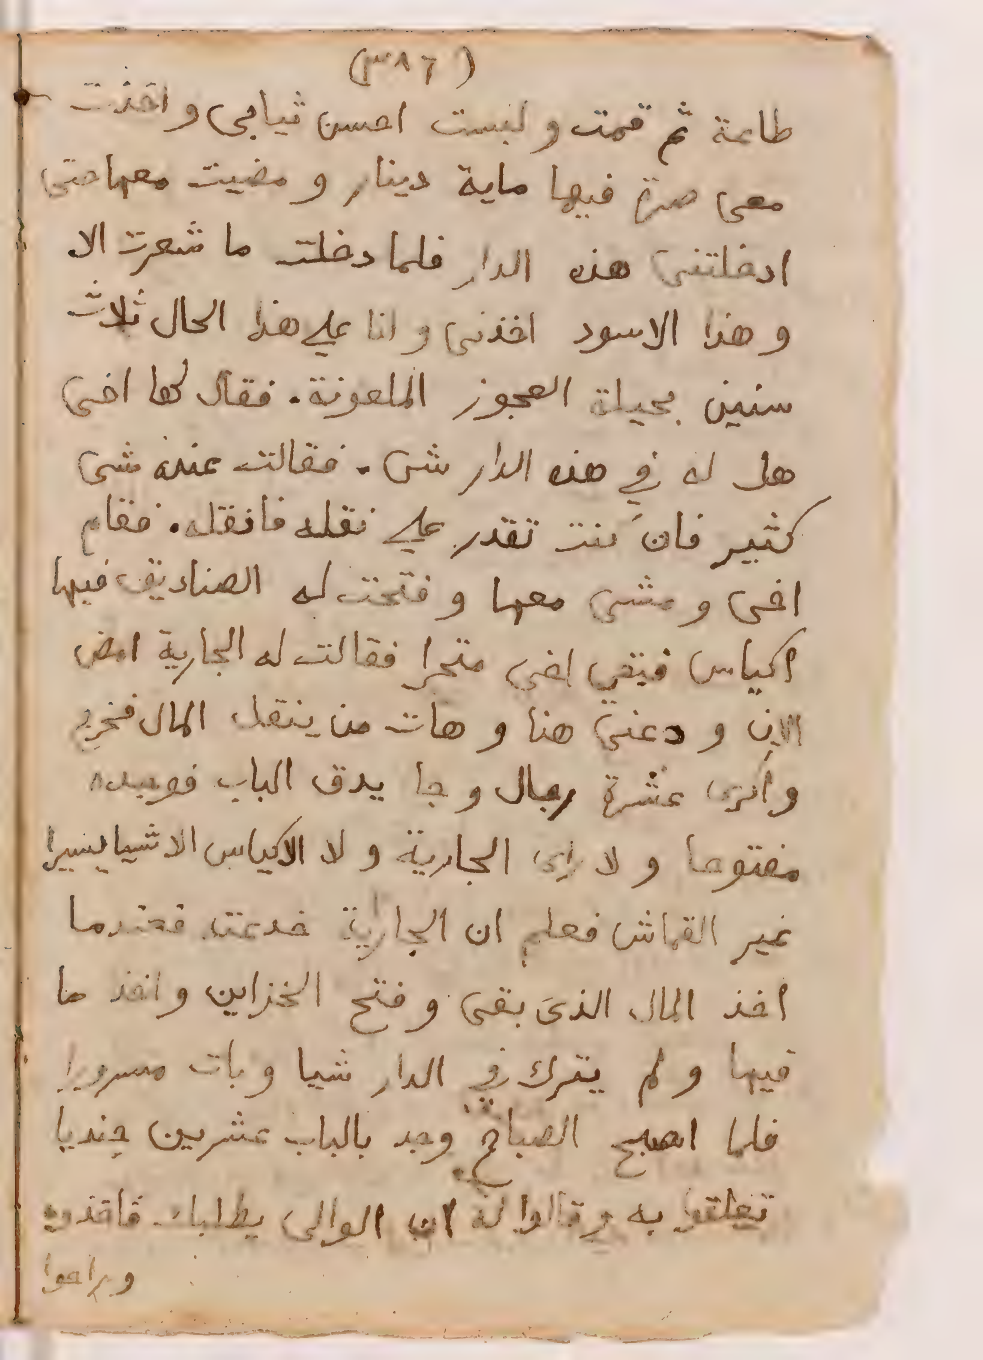 (٣٨٦)
طاعة ثم قمت و لبست احسن ثيابى و اخذت
معى صرة فيها ماية دينار و مضيت معها حتى
ادخلتنى هذه الدار فلما دخلت ما شعرت الا
و هذا الاسود اخذنى و انا على هذا الحال ثلاث
سنين بحيلة العجوز الملعونة. فقال لها اخى
هل له في هذه الدار شى. فقالت عنده شى
كثير فان كنت تقدر على نقله فانقله. فقام
اخى و مشى معها و فتحت له الصناديق فيها
اكياس فبقي اخى متحرا فقالت له الجارية امض
الان و دعنى هنا و هات من ينقل المال فخرج
و اكرى عشرة رجال و جا يدق الباب فوجده
مفتوحا و لا راى الجارية و لا الاكياس الا شيا يسيرا
غير القماش فعلم ان الجارية خدعته فعندما
اخذ المال الذى بقى و فتح الخزاين و اخذ ما
فيها و لم يترك في الدار شيا و بات مسرورا
فلما اصبح الصباح وجد بالباب عشرين جنديا
تعلقوا به و قالوا له ان الوالى يطلبك فاخذوه
و راحوا